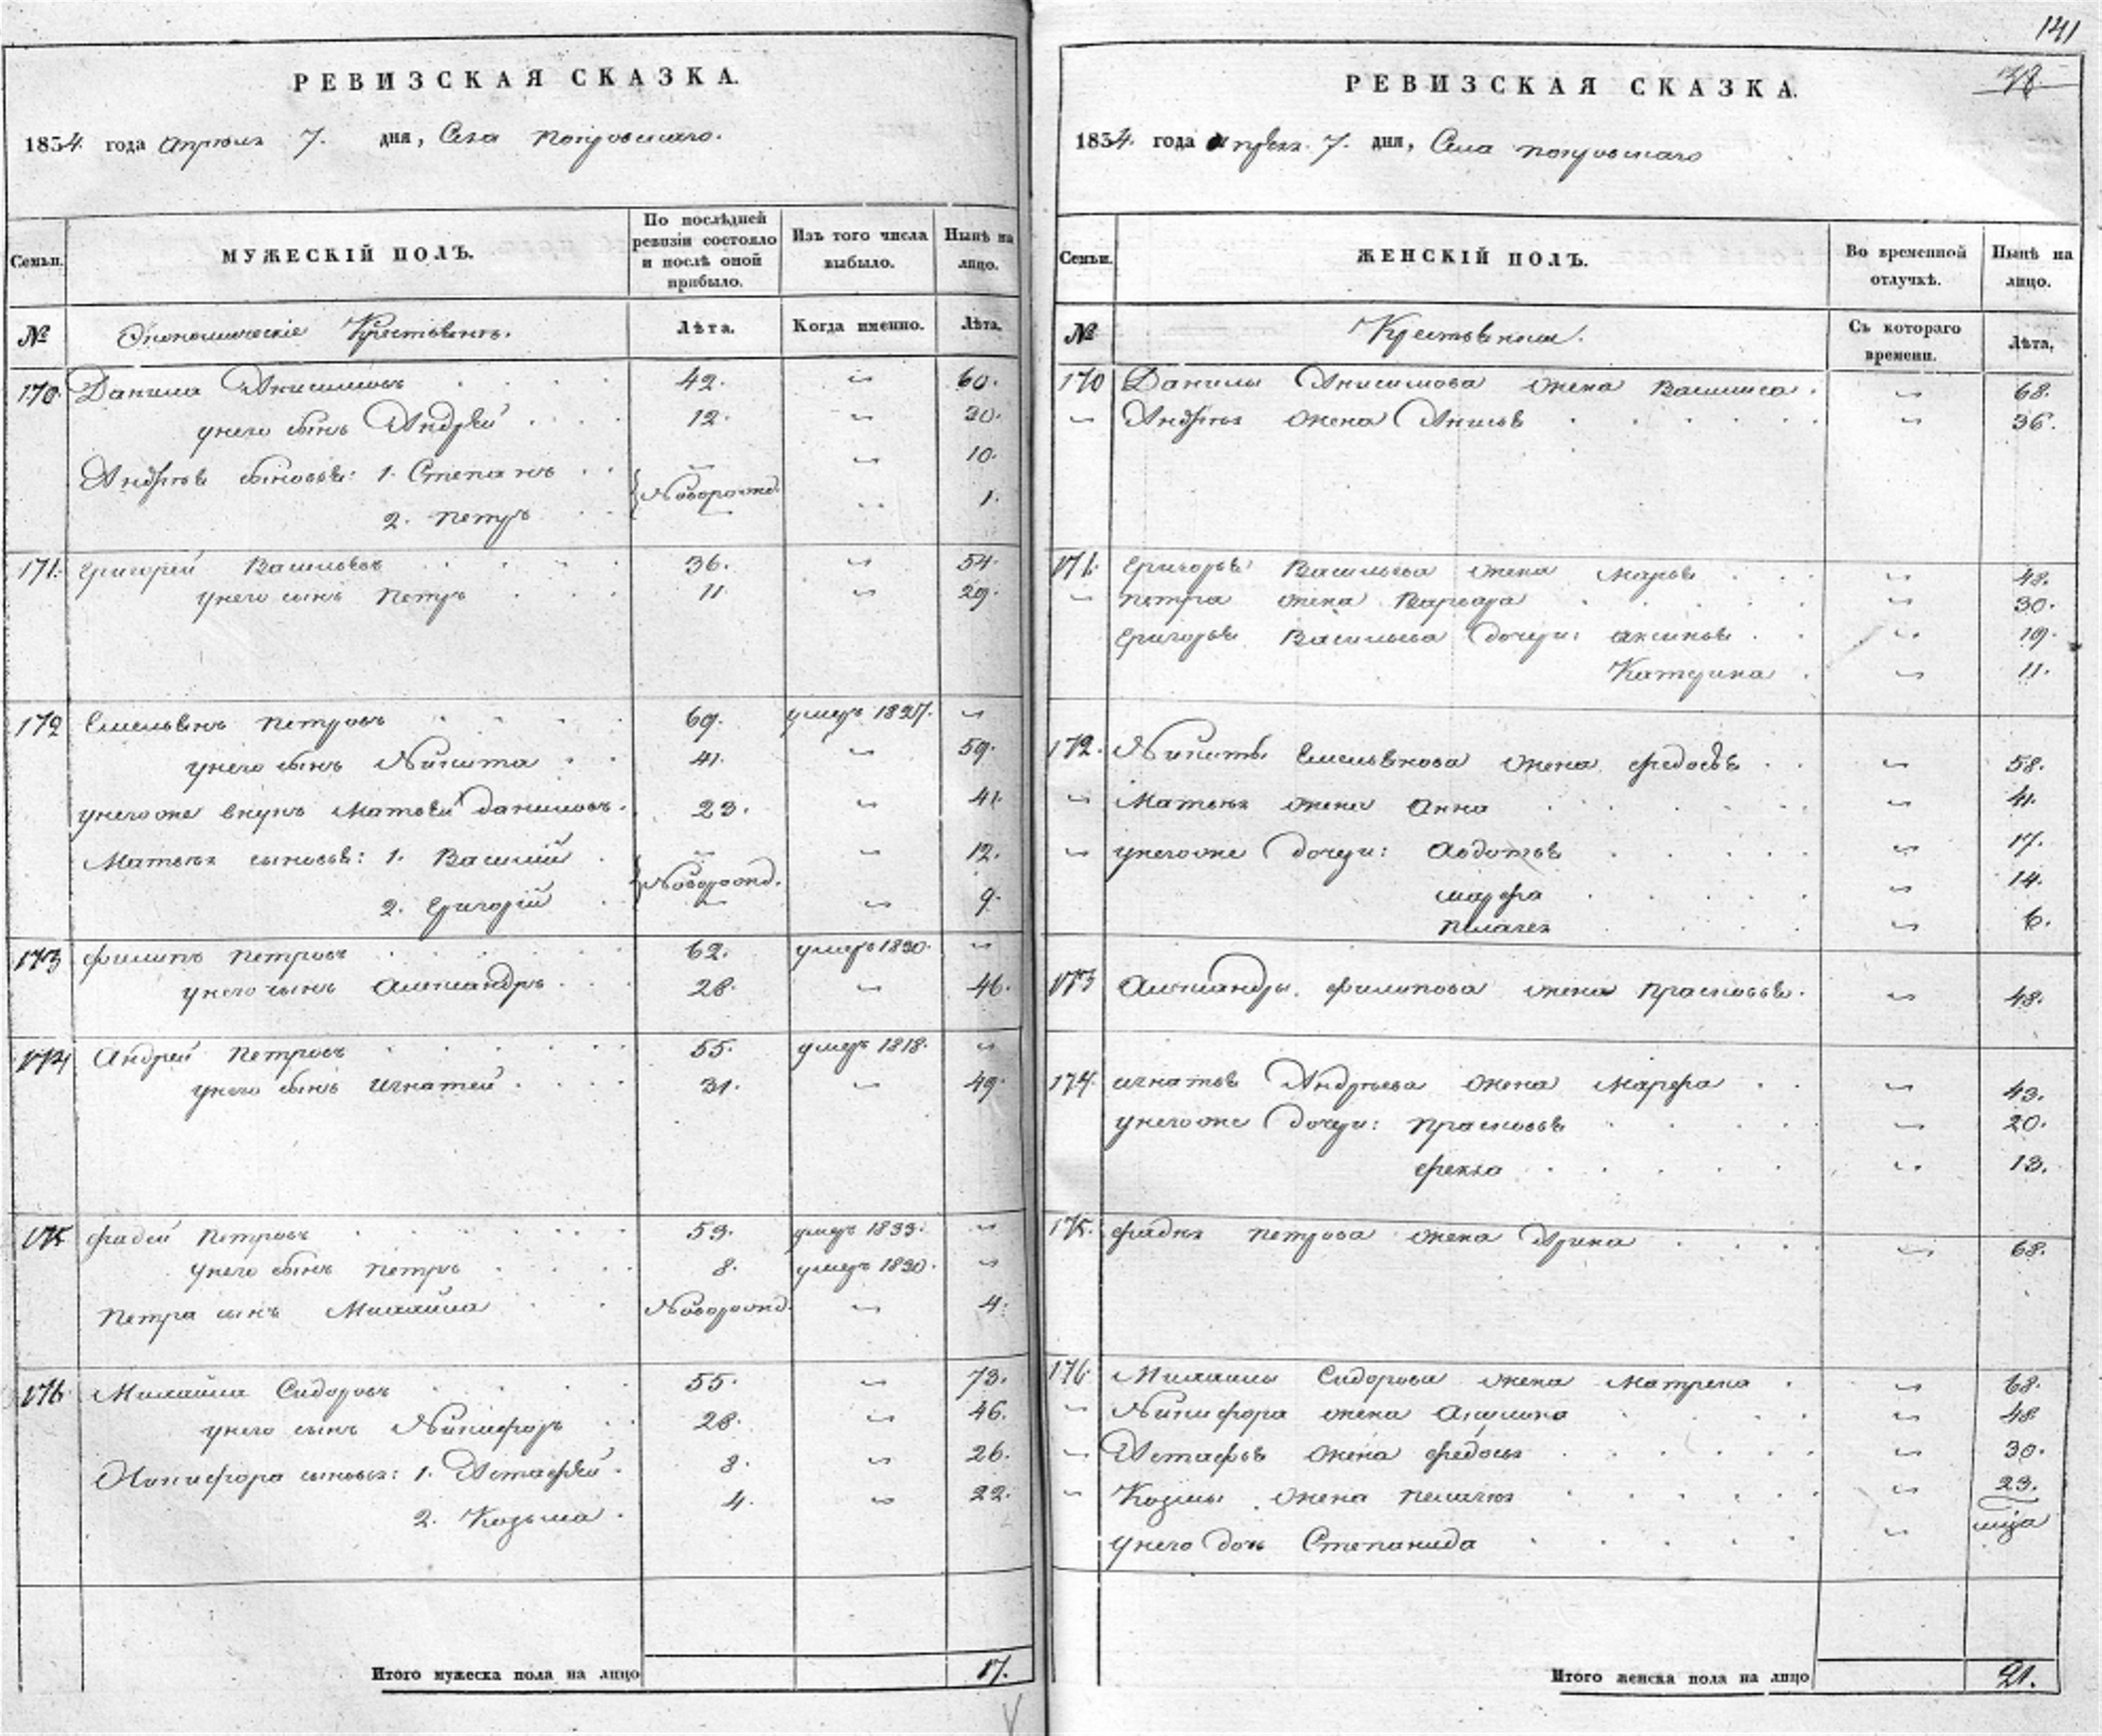 РЕВИЗСКАЯ СКАЗКА.
1834 года апреля 7. дня, Села Покровскаго.
Семьи.
МУЖЕСКІЙ ПОЛЪ.
По послѣдней ревизіи состояло и послѣ оной прибыло.
Изъ того числа выбыло.
Нынѣ на лицо.
№
Экономическіе Крестьяне.
Лѣта.
Когда именно.
Лѣта.
170. Данила Анисимовъ 42. 60.
у него сынъ Андрей 12. 30.
Андрея сыновья: 1. Степанъ 10.
Новорожд.
2. Петръ 1.
171. Григорей Васильевъ 36. 54.
у него сынъ Петръ 11 29.
172 Емельянъ Петровъ 69. умеръ 1827.
у него сынъ Никита 41. 59.
у него же внукъ Матвей Даниловъ. 23. 41.
Матвея сыновья: 1. Василій 12.
Новорожд.
2. Григорій 9.
173 Филипъ Петровъ 62. умеръ 1830.
у него сынъ Александръ 28. 46.
174 Андрей Петровъ 55. умеръ 1818.
у него сынъ Игнатей 31. 49.
175 Фадей Петровъ 53. умеръ 1833.
у него сынъ Петръ 8. умеръ 1830.
Петра сынъ Михайла Новорожд. 4.
176. Михайла Сидоровъ 55. 73.
у него сынъ Никифоръ 28. 46.
Никифора сыновья: 1. Астафей 8. 26.
2. Козьма 4. 22.
Итого мужеска пола на лицо 17.
141
РЕВИЗСКАЯ СКАЗКА.
1834. года апреля 7. дня, Села Покровскаго
Семьи.
ЖЕНСКІЙ ПОЛЪ.
Во временной отлучкѣ.
Нынѣ на лицо.
№
Крестьянки.
Съ котораго времени.
Лѣта.
170 Данилы Анисимова жена Василиса 68.
Андрея жена Анисья 36.
171. Григорья Васильева жена Марья 48.
Петра жена Варвара 30.
Григорья Васильева дочери: Аксинья 19.
Катерина 11.
172. Никиты Емельянова жена Федосья 58.
Матвея жена Анна 41.
у него же дочери: Авдотья 17.
Марфа 14.
Пелагея 6.
173 Александры Филипова жена Прасковья. 48.
174. Игнатья Андреева жена Марфа 43.
у него же дочери: Прасковья 20.
Фекла 13.
175. Фадея Петрова жена Арина 68.
176. Михаилы Сидорова жена Матрена 68.
Никифора жена Акулина 48
Астафья жена Федосья 30.
Козмы жена Пелагея 23.
у него дочь Степанида
Итого женска пола на лицо 21.